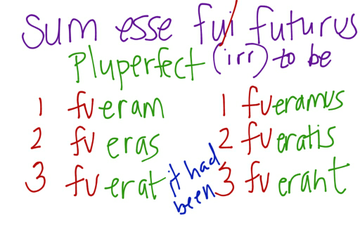 Sum esse fui futurus
Pluperfect (irr) to be
1 fueram 1 fueramus
2 fueras 2 fueratis
3 fuerat it had been 3 fuerant